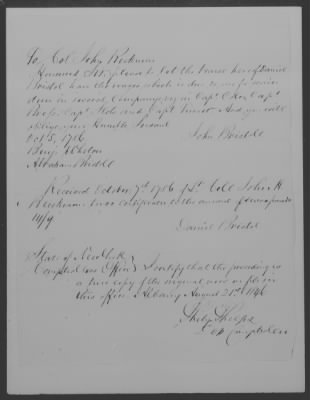 To Col. John Beekman
Honoured Sir, please to let the bearer hereof Daniel
Bristol have the wages which is due to me for service
done in several Companys viz in Capt Okey Capt
Capt and Capt and you will
oblige your Humble Servant
Oct 5, 1786 John Bristol
Benj
Abraham
Received October 7th 1786 of Lt Coll John H
Beekman two certificates to the amount of seven pounds
14/9
Daniel Bristol
State of New York
Comptrollers Office } I certify that the preceding is
a true copy of the original now on file in
this office. Albany August 21st 1846
Philip Phelps
Dep Comptroller